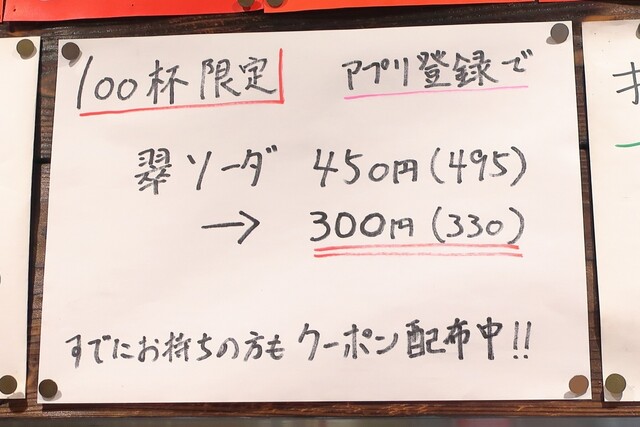 100杯限定 アプリ登録で
翠ソーダ 450円(495)
→ 300円(330)
すでにお持ちの方もクーポン配布中!!